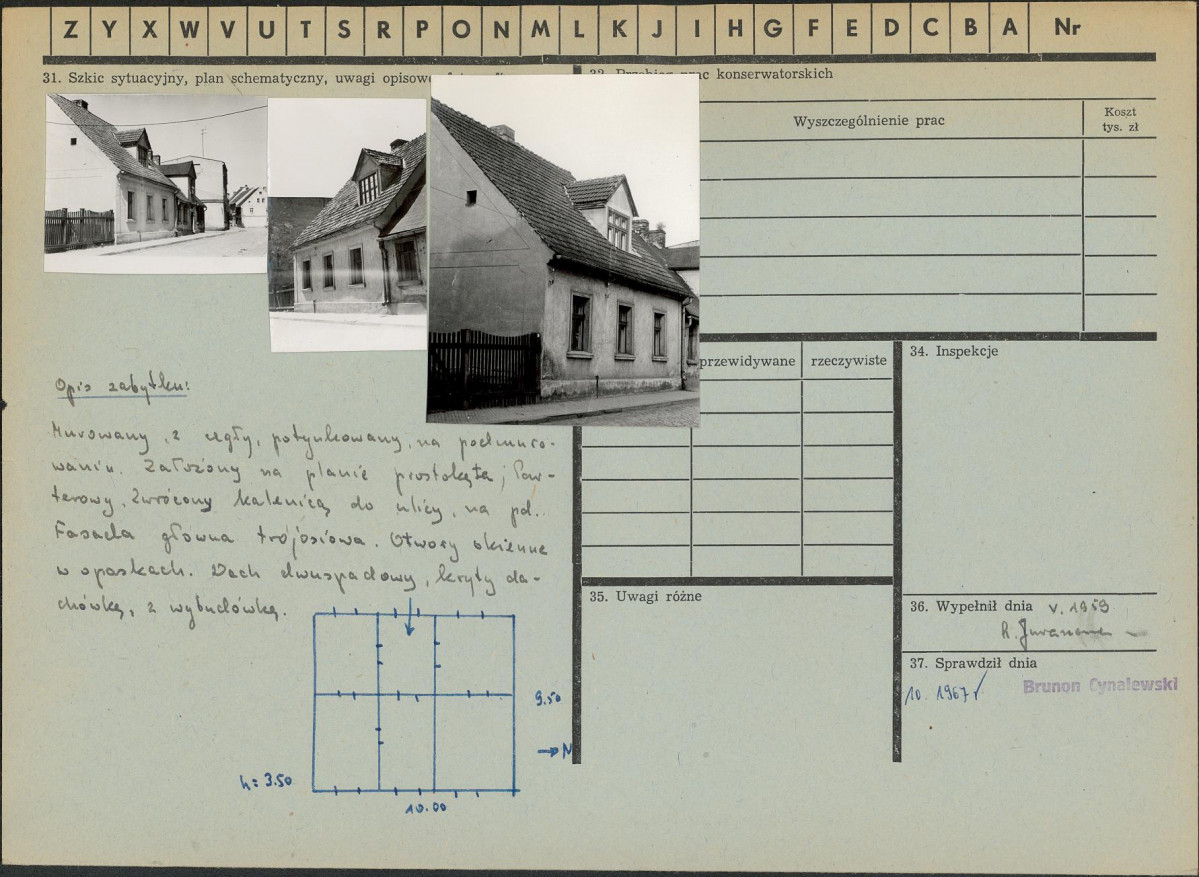 Z Y X W V U T S R P O N M L K J I H G F E D C B A Nr
31. Szkic sytuacyjny, plan schematyczny, uwagi opisowe
konserwatorskich
Wyszczególnienie prac
Koszt
tys. zł
przewidywane
rzeczywiste
34. Inspekcje
Opis zabytku:
Murowany, z cegły, potynkowany, na podmuro-
waniu. Założony na planie prostokąta; Par-
terowy. Zwrócony kalenicą do ulicy, na pd.
Fasada główna trójosiowa. Otwory okienne
w opaskach. Dach dwuspadowy, kryty da-
chówką, z wybudówką.
9.50
→ N
h = 3.50
10.00
35. Uwagi różne
36. Wypełnił dnia V. 1959
37. Sprawdził dnia
10. 1967
Brunon Cynalewski